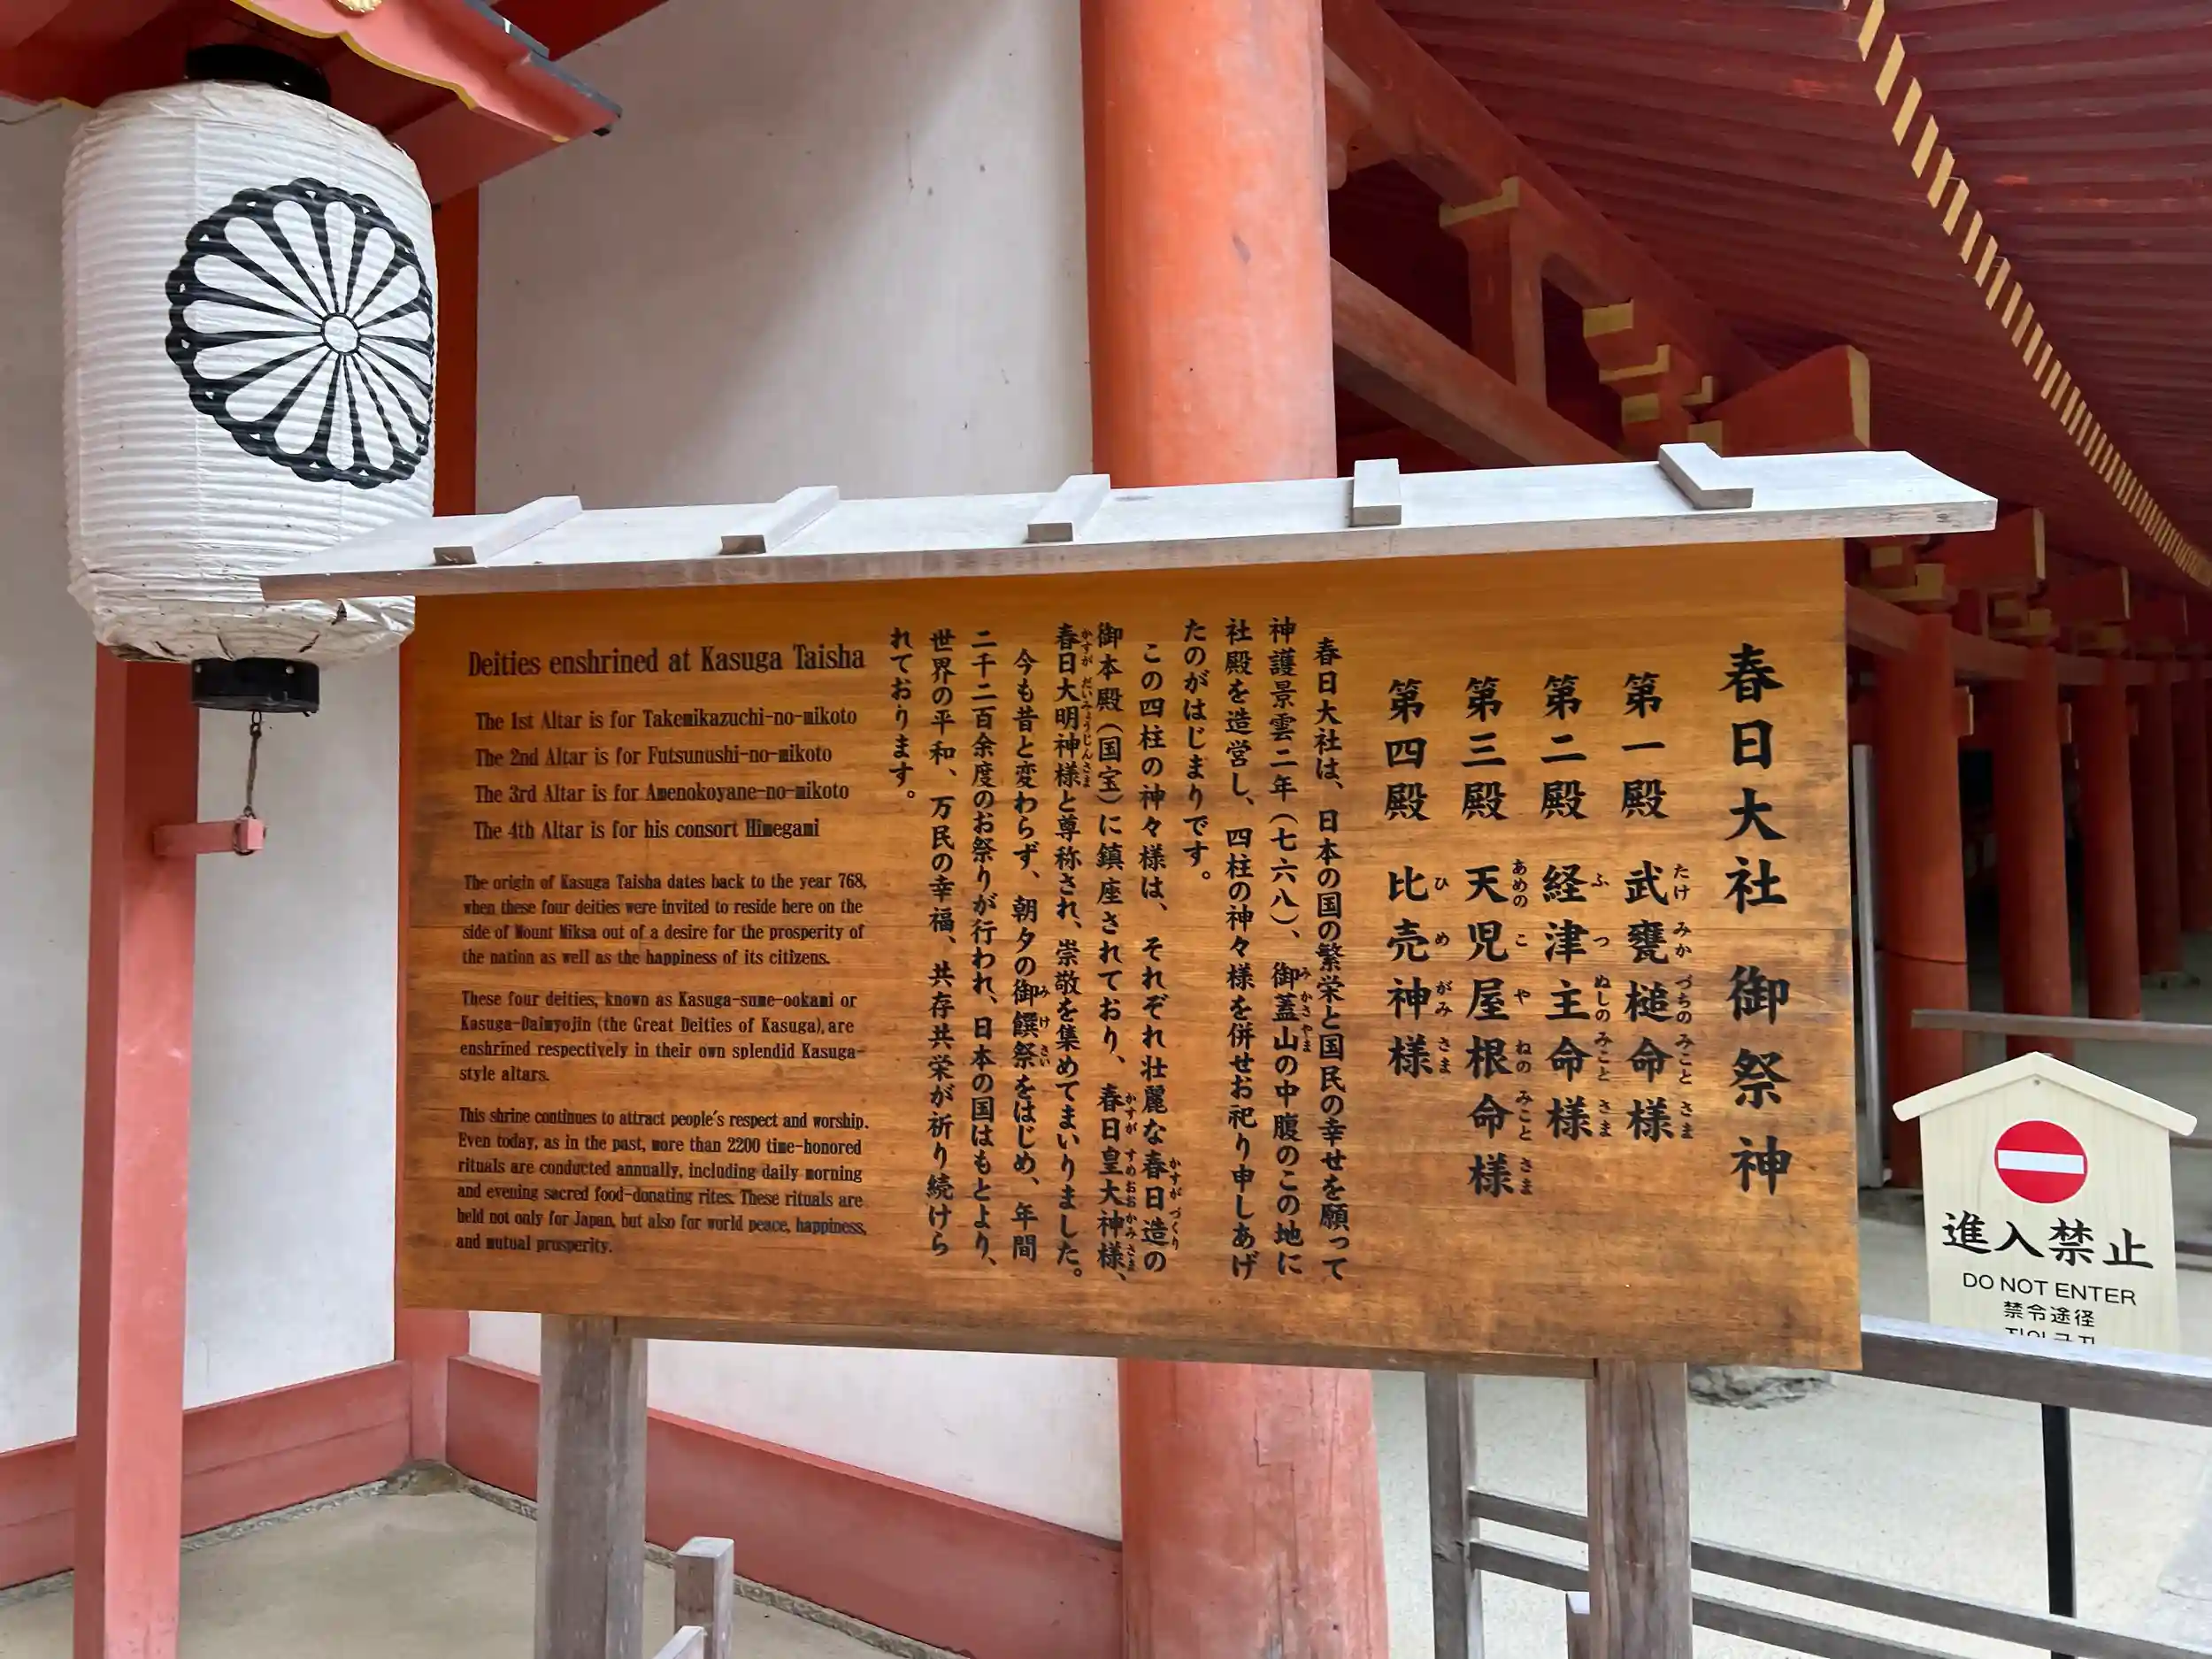 春日大社 御祭神
第一殿 武甕槌命様
たけ みか づちの みこと さま
第二殿 経津主命様
ふ つ ぬしの みこと さま
第三殿 天児屋根命様
あめの こ や ねの みこと さま
第四殿 比売神様
ひ め がみ さま
春日大社は、日本の国の繁栄と国民の幸せを願って
神護景雲二年（七六八）、御蓋山の中腹のこの地に
み かさ やま
社殿を造営し、四柱の神々様を併せお祀り申しあげ
たのがはじまりです。
この四柱の神々様は、それぞれ壮麗な春日造の
かすがづくり
御本殿（国宝）に鎮座されており、春日皇大神様、
かすが すめおおかみさま
春日大明神様と尊称され、崇敬を集めてまいりました。
かすが だいみょうじんさま
今も昔と変わらず、朝夕の御饌祭をはじめ、年間
み け さい
二千二百余度のお祭りが行われ、日本の国はもとより、
世界の平和、万民の幸福、共存共栄が祈り続けら
れております。
Deities enshrined at Kasuga Taisha
The 1st Altar is for Takemikazuchi-no-mikoto
The 2nd Altar is for Futsunushi-no-mikoto
The 3rd Altar is for Amenokoyane-no-mikoto
The 4th Altar is for his consort Himegami
The origin of Kasuga Taisha dates back to the year 768,
when these four deities were invited to reside here on the
side of Mount Miksa out of a desire for the prosperity of
the nation as well as the happiness of its citizens.
These four deities, known as Kasuga-sume-ookami or
Kasuga-Daimyojin (the Great Deities of Kasuga), are
enshrined respectively in their own splendid Kasuga-
style altars.
This shrine continues to attract people's respect and worship.
Even today, as in the past, more than 2200 time-honored
rituals are conducted annually, including daily morning
and evening sacred food-donating rites. These rituals are
held not only for Japan, but also for world peace, happiness,
and mutual prosperity.
進入禁止
DO NOT ENTER
禁令途径